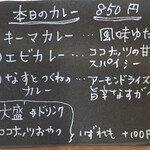 本日のカレー 850円
キーマカレー… 風味ゆた
エビカレー… ココナッツの甘
スパイシー
なすとつくねの
カレー … アーモンドライス
旨辛なすが
大盛 ドリンク
ココナッツおやつ いずれも +100円